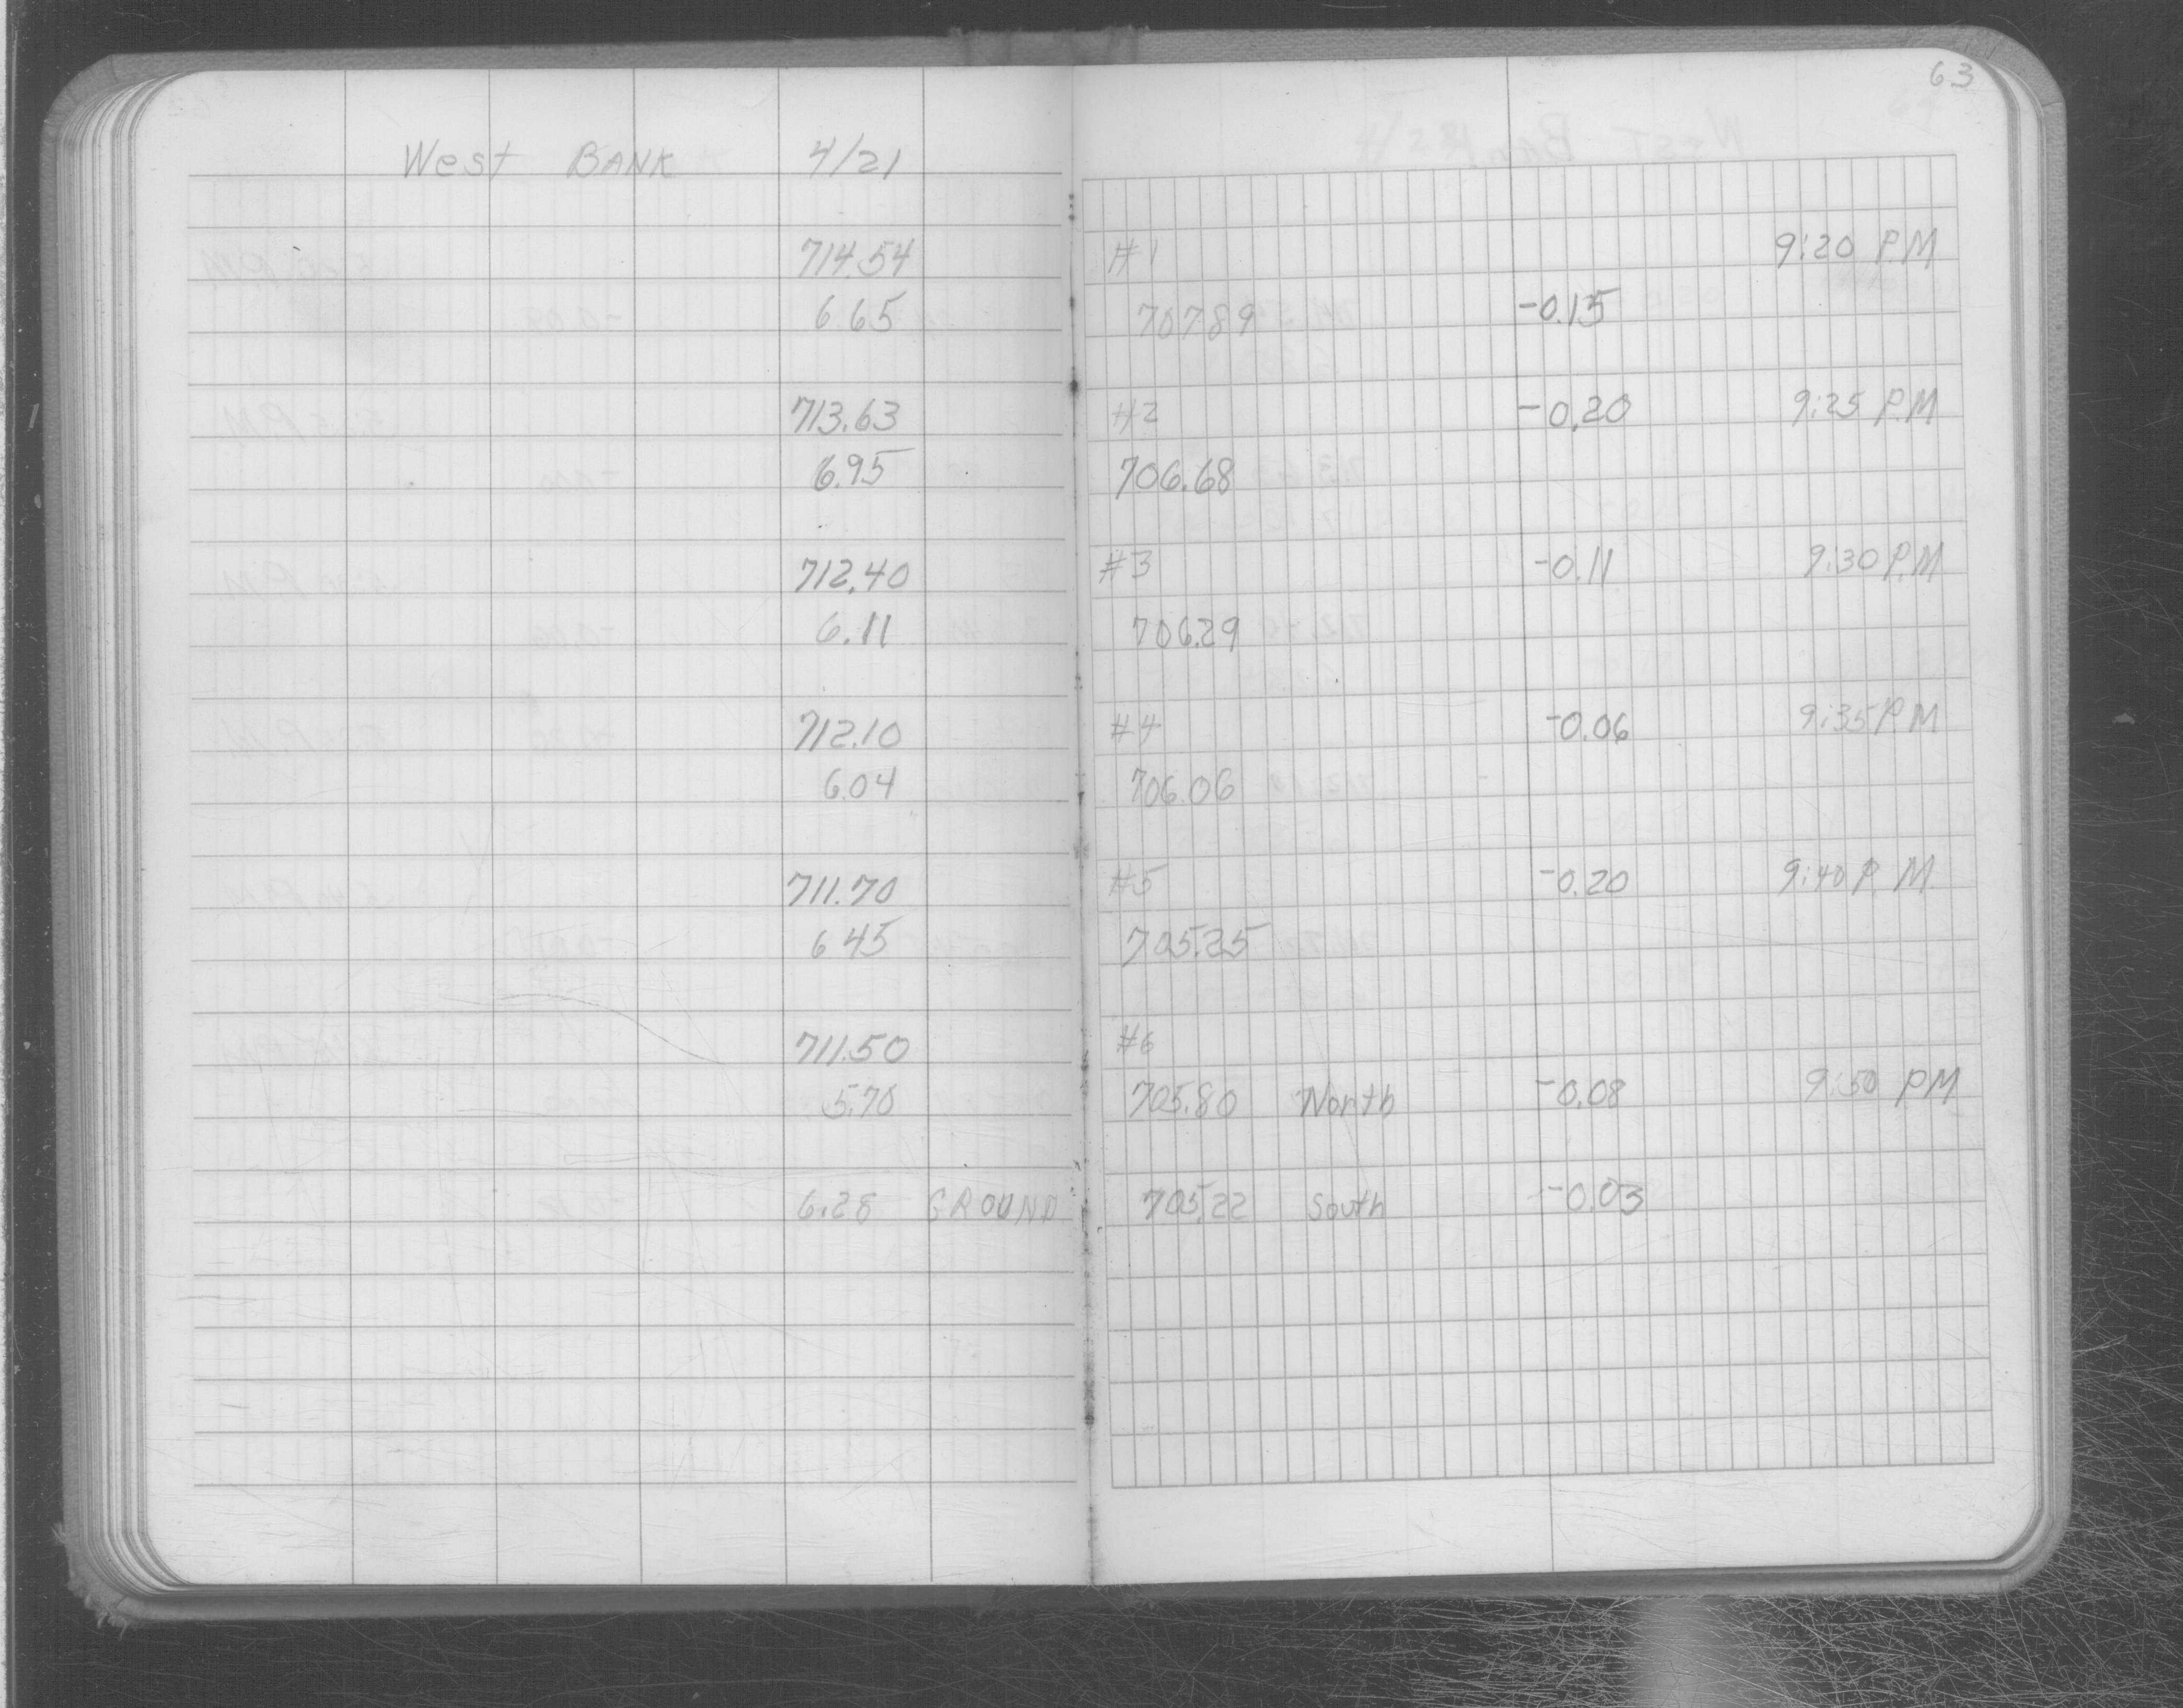 63
West BANK 4/21
714.54 #1 9:20 P.M
6.65 707.89 -0.15
713.63 #2 -0.20 9:25 P.M
6.95 706.68
712.40 #3 -0.11 9:30 P.M
6.11 706.29
712.10 #4 -0.06 9:35 P.M
6.04 706.06
711.70 #5 -0.20 9:40 P.M.
6.45 705.25
711.50 #6
5.70 705.80 North -0.08 9:50 PM
6.28 GROUND 705.22 South -0.03